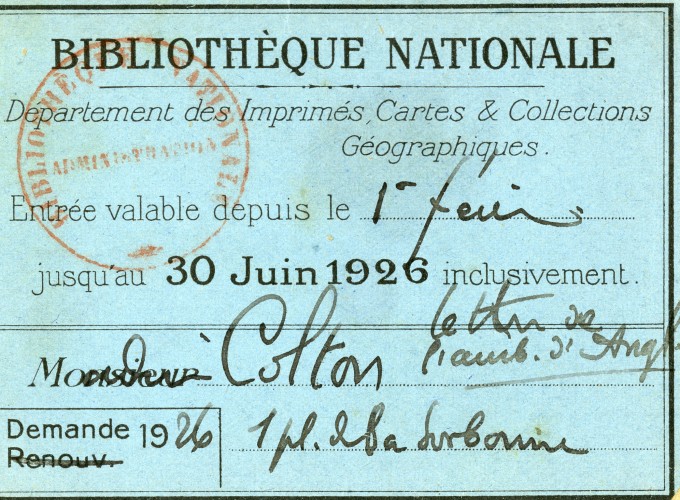 BIBLIOTHÈQUE NATIONALE
Département des Imprimés, Cartes & Collections
Géographiques.
BIBLIOTHÈQUE NATIONALE
ADMINISTRATION
Entrée valable depuis le 1er
jusqu'au 30 Juin 1926 inclusivement.
lettre de
Monsieur Colton l'amb. d'Angl
Demande 1926 1 pl. de la Sorbonne
Renouv.